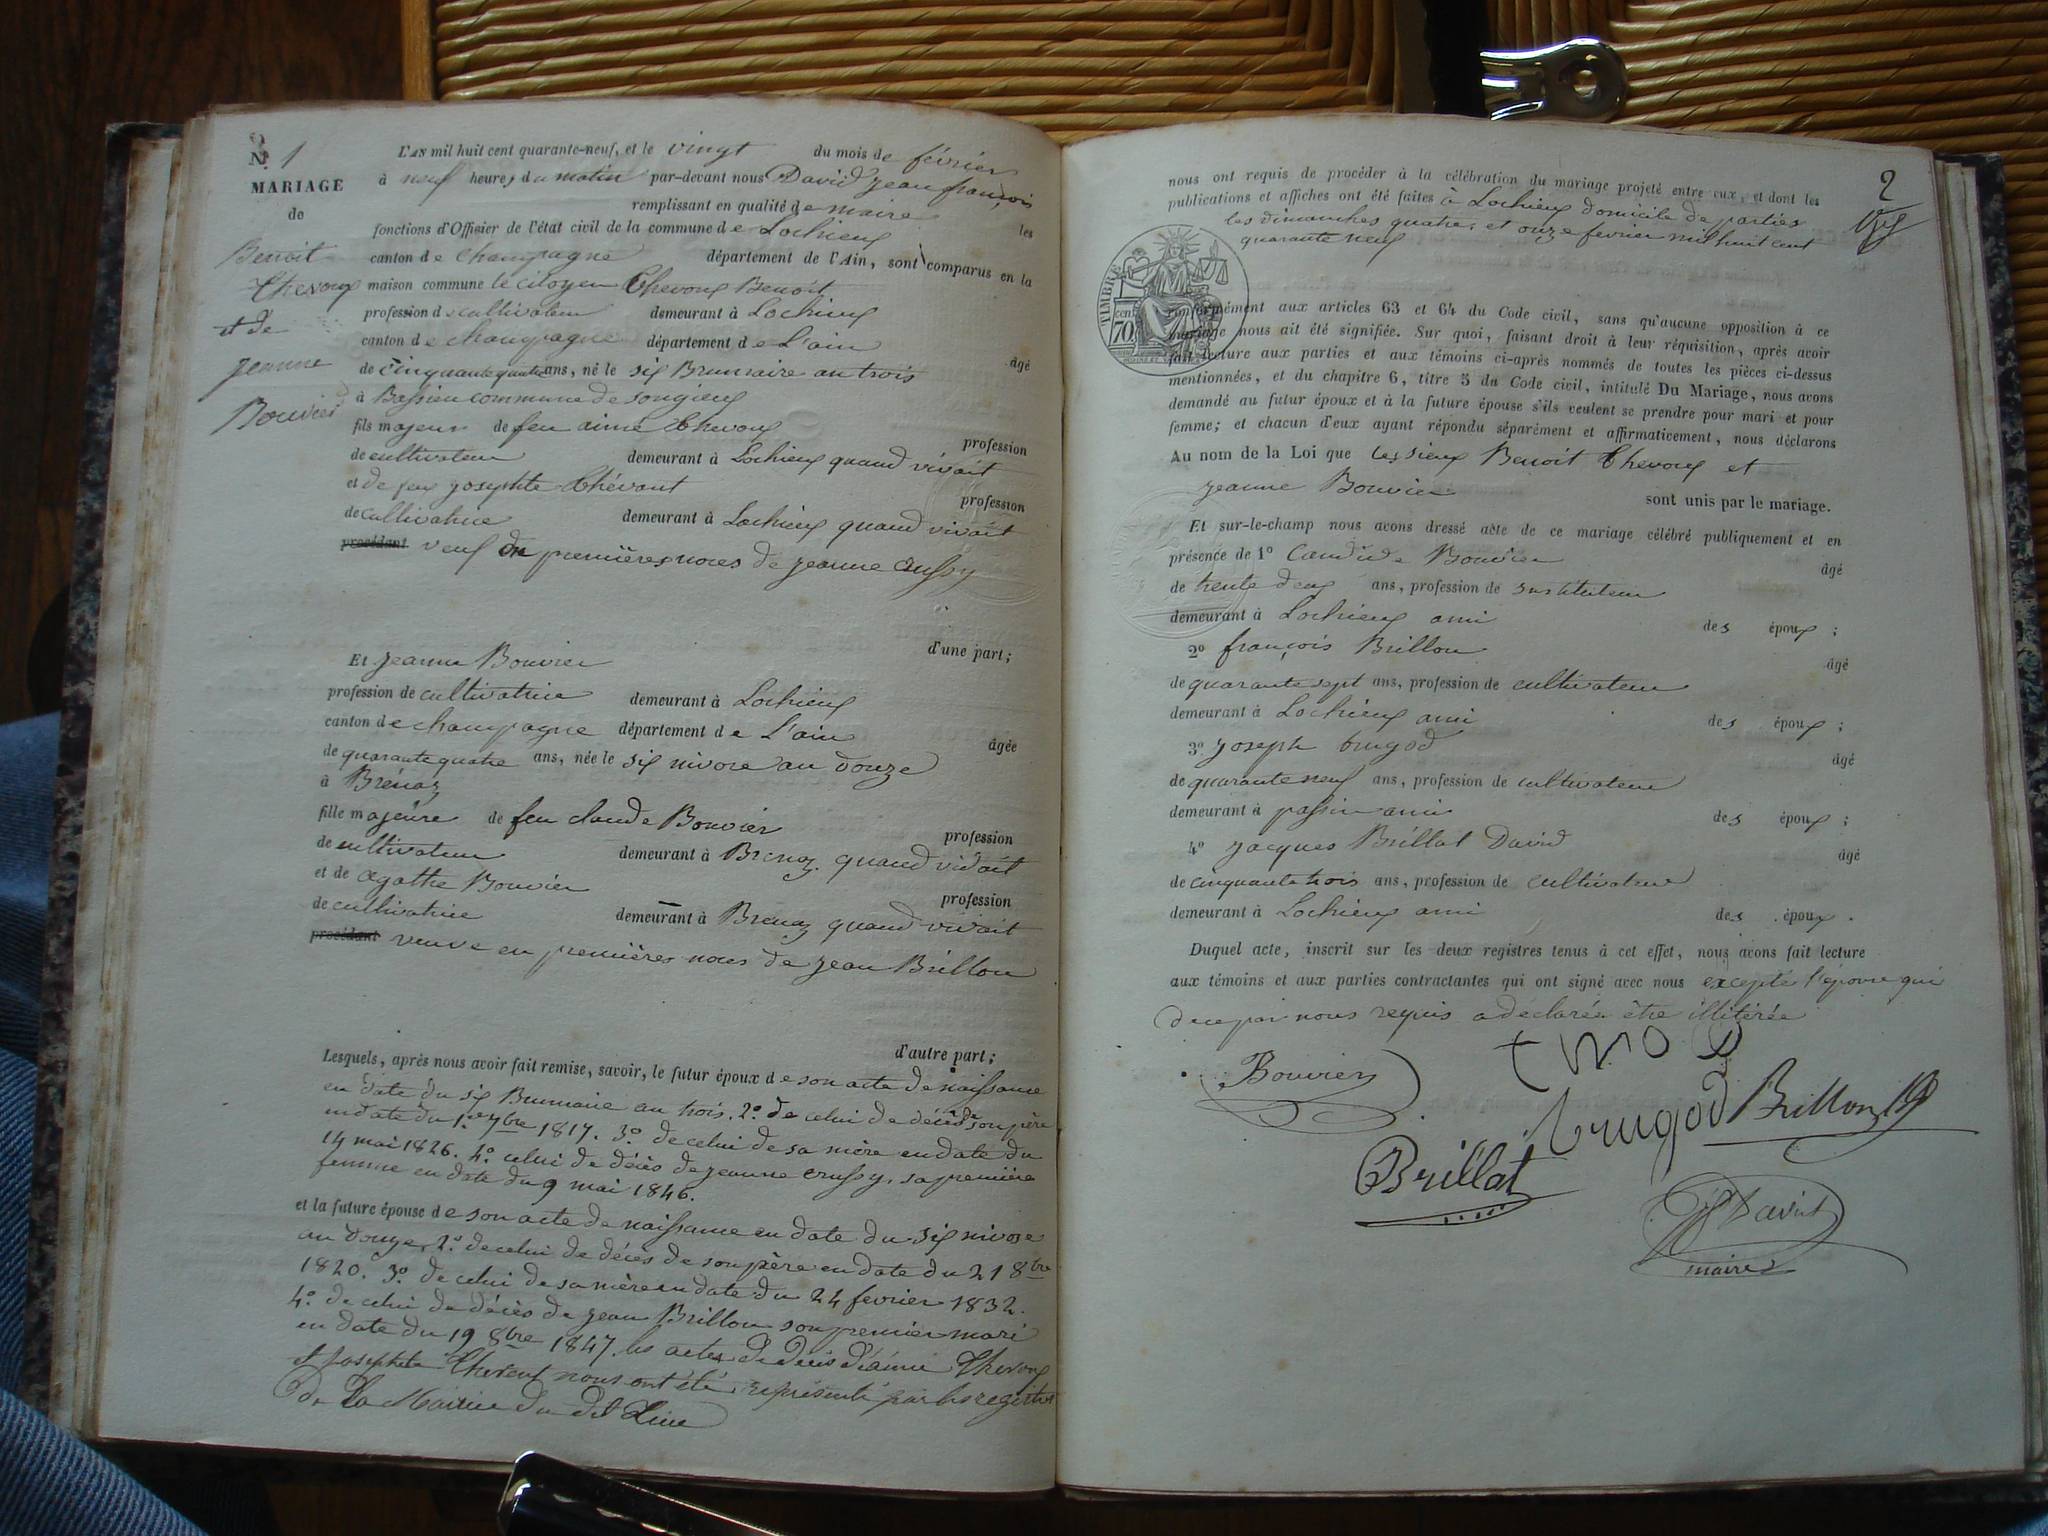 N° 1
MARIAGE
de
Benoit
Thevoux
et de
jeanne
Bouvier
L'AN mil huit cent quarante-neuf, et le vingt du mois de février
à neuf heures du matin par-devant nous David jean françois
remplissant en qualité de maire les
fonctions d'Officier de l'état civil de la commune de Lochieux
canton de champagne département de l'Ain, sont comparus en la
maison commune le citoyen Thevoux Benoit
profession de cultivateur demeurant à Lochieux
canton de champagne département de L'ain âgé
de cinquante quatre ans, né le six Brumaire an trois
à Bassieu commune de songieux
fils majeur de feu aimé Thevoux profession
de cultivateur demeurant à Lochieux quand vivait
et de feu josephte Thévont profession
de cultivatrice demeurant à Lochieux quand vivait
procédant veuf en premières noces de jeanne Crussy
d'une part;
Et jeanne Bouvier
profession de cultivatrice demeurant à Lochieux
canton de champagne département de L'ain âgée
de quarante quatre ans, née le six nivose an douze
à Brénaz
fille majeure de feu claude Bouvier profession
de cultivateur demeurant à Brenaz quand vivait
et de agathe Bouvier profession
de cultivatrice demeurant à Brenaz quand vivait
procédant veuve en premières noces de jean Brillon
d'autre part;
Lesquels, après nous avoir fait remise, savoir, le futur époux de son acte de naissance
en date du six Brumaire an trois. 2° de celui de décès de son père
en date du 1er 7bre 1817. 3° de celui de sa mère en date du
14 mai 1826. 4° celui de décès de jeanne crussy, sa première
femme en date du 9 mai 1846.
et la future épouse de son acte de naissance en date du six nivose
an douze. 2° de celui de décès de son père en date du 21 8bre
1820. 3° de celui de sa mère en date du 24 fevrier 1832.
4° de celui de décès de jean Brillon son premier mari
en date du 19 8bre 1847. les actes de décès d'aimé Thevoux
et josephte Thevoux nous ont été représenté par les registres
de La Mairie du dit Lieu
2
nous ont requis de procéder à la célébration du mariage projeté entre eux, et dont les
publications et affiches ont été faites à Lochieux domicile de parties
les dimanches quatre, et onze fevrier mil huit cent
quarante neuf
TIMBRE
70 cent
conformément aux articles 63 et 64 du Code civil, sans qu'aucune opposition à ce
mariage nous ait été signifiée. Sur quoi, faisant droit à leur réquisition, après avoir
fait lecture aux parties et aux témoins ci-après nommés de toutes les pièces ci-dessus
mentionnées, et du chapitre 6, titre 5 du Code civil, intitulé Du Mariage, nous avons
demandé au futur époux et à la future épouse s'ils veulent se prendre pour mari et pour
femme; et chacun d'eux ayant répondu séparément et affirmativement, nous déclarons
Au nom de la Loi que les sieux Benoit Thevoux et
jeanne Bouvier sont unis par le mariage.
Et sur-le-champ nous avons dressé acte de ce mariage célébré publiquement et en
présence de 1° Candide Bouvier âgé
de trente deux ans, profession de instituteur
demeurant à Lochieux ami des époux;
2° françois Brillon âgé
de quarante sept ans, profession de cultivateur
demeurant à Lochieux ami des époux;
3° joseph trugod âgé
de quarante neuf ans, profession de cultivateur
demeurant à passin ami des époux;
4° jacques Brillat David âgé
de cinquante trois ans, profession de cultivateur
demeurant à Lochieux ami des époux.
Duquel acte, inscrit sur les deux registres tenus à cet effet, nous avons fait lecture
aux témoins et aux parties contractantes qui ont signé avec nous excepté l'épouse qui
de ce par nous requis a déclaré être illitérée
Bouvier
trugod Brillon
Brillat
David
maire